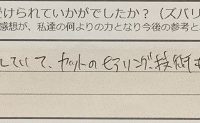 受けられていかがでしたか？（ズバリ
感想が、私達の何よりの力となり今後の参考と
していて、カットのヒアリング、技術も